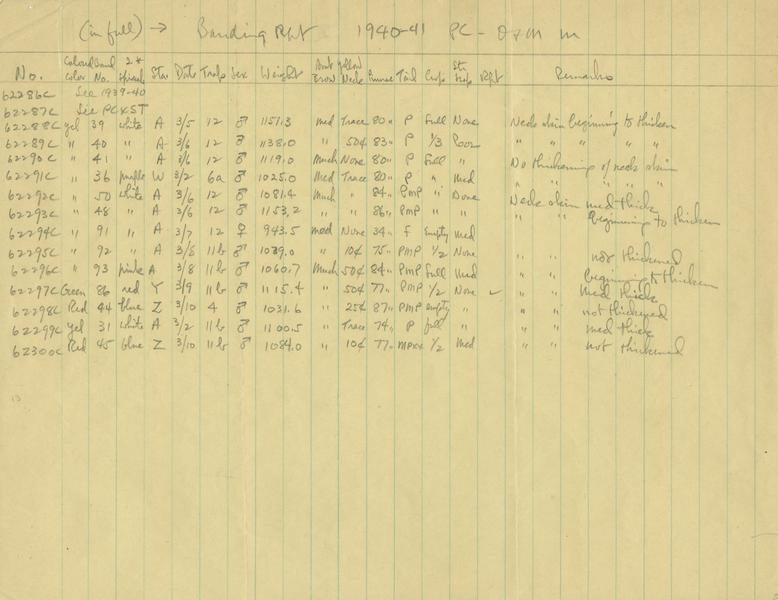 (in full) → Banding Rpt 1940-41 PC - O & M m
No. Coloured band color No. 2* Spread Sta Date Trap Sex Weight Amt Brow Yellow Neck Pinnae Tail Crop Str Rpt Remarks
62286c See 1939-40
62287c See PCxST
62288c yel 39 white A 3/5 12 ♂ 1151.3 med Trace 80 " P Full None Neck skin beginning to thicken
62289c " 40 " A 3/6 12 ♂ 1138.0 " 50¢ 83 " P 1/3 Poor " " " "
62290c " 41 " A 3/6 12 ♂ 1119.0 Much None 80 " P Full " No thickening of neck skin
62291c " 36 purple W 3/2 6a ♂ 1025.0 Med Trace 80 " P " med " " " "
62292c " 50 white A 3/6 12 ♂ 1081.4 Much " 84 " PMP " None Neck skin med thick
62293c " 48 " A 3/6 12 ♂ 1153.2 " " 86 " PMP " " " " Beginning to thicken
62294c " 91 " A 3/7 12 ♀ 943.5 med None 34 " F empty med
62295c " 92 " A 3/8 11b ♂ 1039.0 " 10¢ 75 " PMP 1/2 None " " not thickened
62296c " 93 pink A 3/8 11b ♂ 1060.7 Much 50¢ 84 " PMP Full Med " " beginning to thicken
62297c Green 86 red Y 3/9 11b ♂ 1115.4 " 50¢ 77 " PMP 1/2 None ✓ " " Med thick
62298c Red 44 blue Z 3/10 4 ♂ 1031.6 " 25¢ 87 " PMP empty " " " not thickened
62299c Yel 31 white A 3/2 11b ♂ 1100.5 " Trace 74 " P full " " " med thick
62300c Red 45 blue Z 3/10 11b ♂ 1084.0 " 10¢ 77 " MPXX 1/2 Med " " not thickened
13